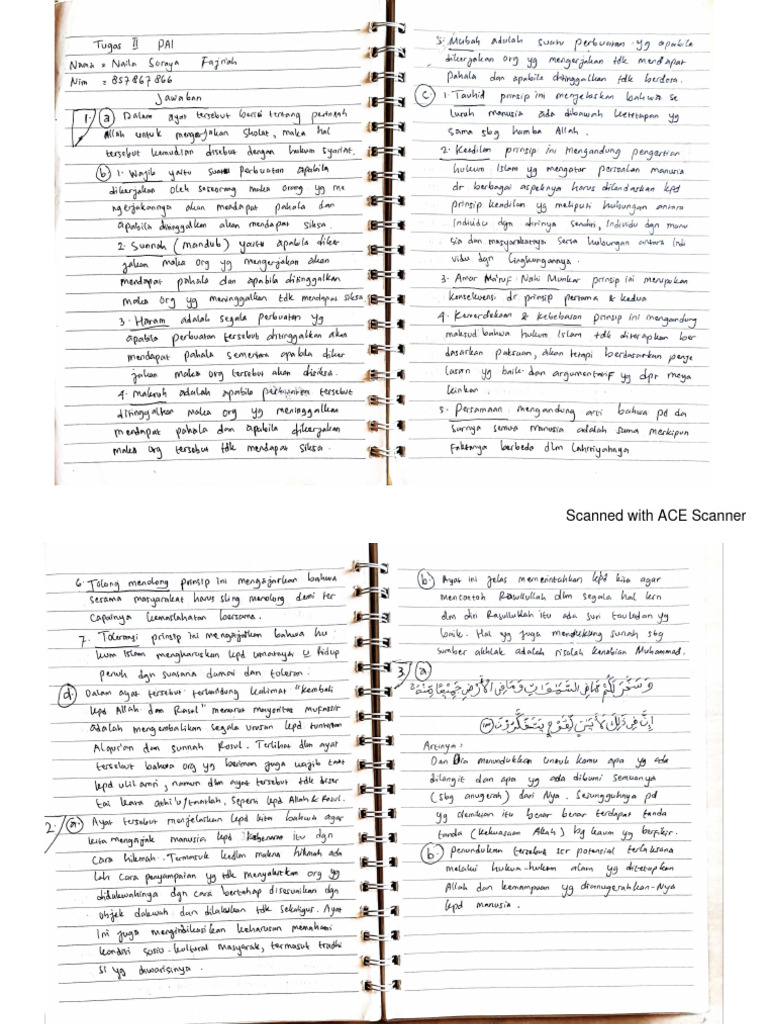 Tugas II PAI
Nama = Naila Soraya Fajriah
Nim = 857867866
Jawaban
1. (a) Dalam ayat tersebut berisi tentang perintah
Allah untuk mengerjakan sholat, maka hal
tersebut kemudian disebut dengan hukum syariat.
(b) 1. Wajib yaitu suatu perbuatan apabila
dikerjakan oleh seseorang maka orang yg me
ngerjakannya akan mendapat pahala dan
apabila ditinggalkan akan mendapat siksa.
2. Sunnah (mandub) yaitu apabila diker
jakan maka org yg mengerjakan akan
mendapat pahala dan apabila ditinggalkan
maka org yg meninggalkan tdk mendapat siksa.
3. Haram adalah segala perbuatan yg
apabila perbuatan tersebut ditinggalkan akan
mendapat pahala sementara apabila diker
jakan maka org tersebut akan disiksa.
4. makruh adalah apabila perbuatan tersebut
ditinggalkan maka org yg meninggalkan
mendapat pahala dan apabila dikerjakan
maka org tersebut tdk mendapat siksa.
5. Mubah adalah suatu perbuatan yg apabila
dikerjakan org yg mengerjakan tdk mendapat
pahala dan apabila ditinggalkan tdk berdosa.
(c) 1. Tauhid prinsip ini menjelaskan bahwa se
luruh manusia ada dibawah ketetapan yg
sama sbg hamba Allah.
2. Keadilan prinsip ini mengandung pengertian
hukum Islam yg mengatur persoalan manusia
dr berbagai aspeknya harus dilandaskan kpd
prinsip keadilan yg meliputi hubungan antara
Individu dgn dirinya sendiri, Individu dgn manu
sia dan masyarakatnya serta hubungan antara Indi
vidu dgn Lingkungannya.
3. Amar Ma'ruf Nahi Munkar prinsip ini merupakan
konsekuensi dr prinsip pertama & kedua
4. Kemerdekaan & kebebasan prinsip ini mengandung
maksud bahwa hukum Islam tdk diterapkan ber
dasarkan paksaan, akan tetapi berdasarkan penje
lasan yg baik dan argumentatif yg dpt meya
kinkan.
5. Persamaan mengandung arti bahwa pd da
sarnya semua manusia adalah sama meskipun
faktanya berbeda dlm lahiriyahnya
Scanned with ACE Scanner
6. Tolong menolong prinsip ini mengajarkan bahwa
sesama masyarakat harus sling menolong demi ter
capainya kemaslahatan bersama.
7. Toleransi prinsip ini mengajarkan bahwa hu
kum Islam mengharuskan kpd umatnya u hidup
penuh dgn suasana damai dan toleran.
(d) Dalam ayat tersebut terkandung kalimat "kembali
kpd Allah dan Rasul" menurut mayoritas mufassir
adalah mengembalikan segala urusan kpd tuntunan
Alqur'an dan sunnah Rosul. Terlihat dlm ayat
tersebut bahwa org yg beriman juga wajib taat
kpd ulil amri, namun dlm ayat tersebut tdk diser
tai kata athi'u/taatlah. Seperti kpd Allah & Rasul.
2. (a) Ayat tersebut menjelaskan kpd kita bahwa agar
kita mengajak manusia kpd kebenaran itu dgn
cara hikmah. Termasuk kedlm makna hikmah ada
lah cara penyampaian yg tdk menyulitkan org yg
didakwahinya dgn cara bertahap disesuaikan dgn
objek dakwah dan dilakukan tdk sekaligus. Ayat
Ini juga mengindikasikan keharusan memahami
kondisi sosio-kultural masyarak, termasuk tradi
si yg diwarisinya.
(b) Ayat ini jelas memerintahkan kpd kita agar
mencontoh Rasulullah dlm segala hal krn
dlm diri Rasullullah itu ada suri tauladan yg
baik. Hal yg juga mendukung sunah sbg
sumber akhlak adalah risalah kenabian Muhammad.
3. (a)
وَسَخَّرَ لَكُمْ مَّا فِى السَّمٰوٰتِ وَمَا فِى الْاَرْضِ جَمِيْعًا مِّنْهُ
اِنَّ فِيْ ذٰلِكَ لَاٰيٰتٍ لِّقَوْمٍ يَّتَفَكَّرُوْنَ
Artinya:
Dan Dia menundukkan untuk kamu apa yg ada
dilangit dan apa yg ada dibumi semuanya
(sbg anugerah) dari Nya. Sesungguhnya pd
yg demikian itu benar benar terdapat tanda
tanda (kekuasaan Allah) bg kaum yg berfikir.
(b) penundukan tersebut scr potensial terlaksana
melalui hukum-hukum alam yg ditetapkan
Allah dan kemampuan yg dianugerahkan-Nya
kpd manusia.